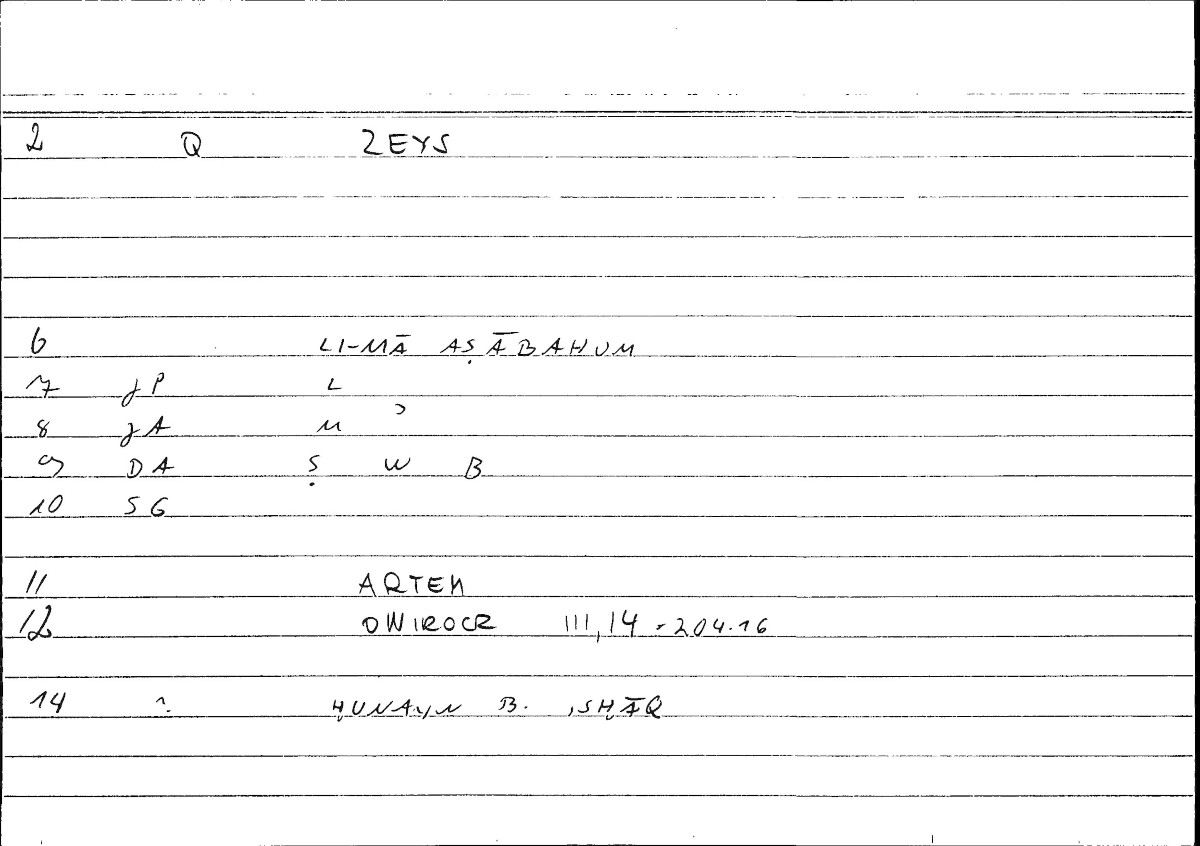 2 Q ZEYS
6 LI-MĀ AṢĀBAHUM
7 JP L
8 JA M ʾ
9 DA Ṣ W B
10 SG
11 ARTEM
12 ONIROCR III,14 = 204.16
14 ? ḤUNAYN B. ISḤĀQ